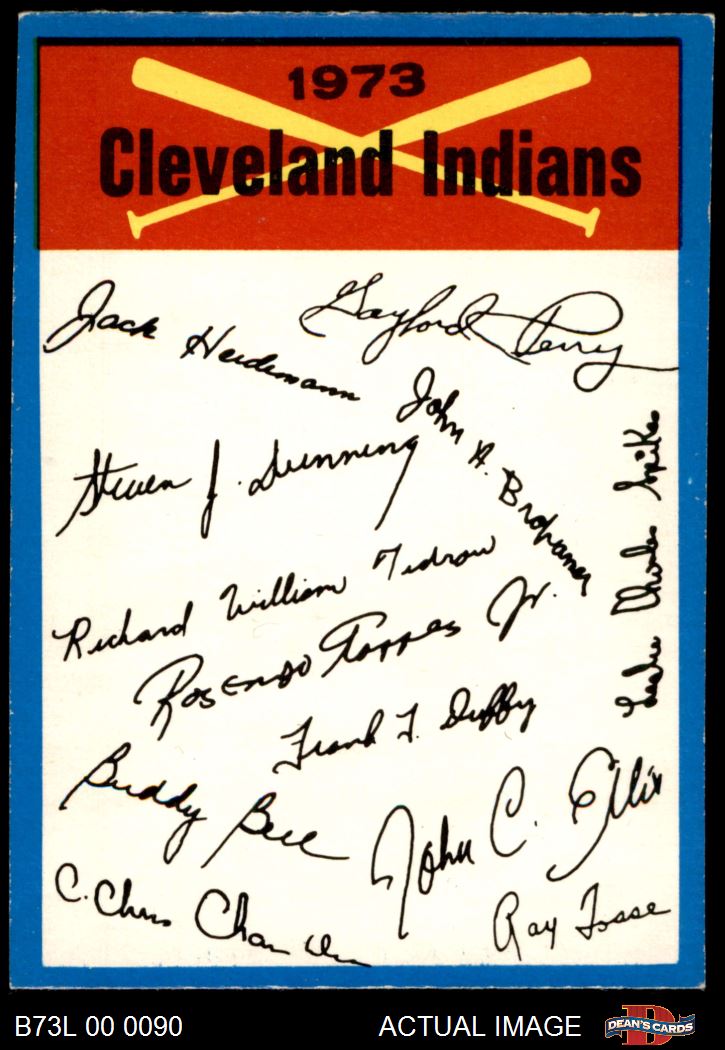 1973
Cleveland Indians
Jack Heidemann
Gaylord Perry
John A. Brohamer
Steven J. Dunning
Leslie Charles Spikes
Richard William Tidrow
Rosendo Torres Jr.
Frank T. Duffy
Buddy Bell
John C. Ellis
C. Chris Chambliss
Ray Fosse
B73L 00 0090
ACTUAL IMAGE
D
DEAN'S CARDS